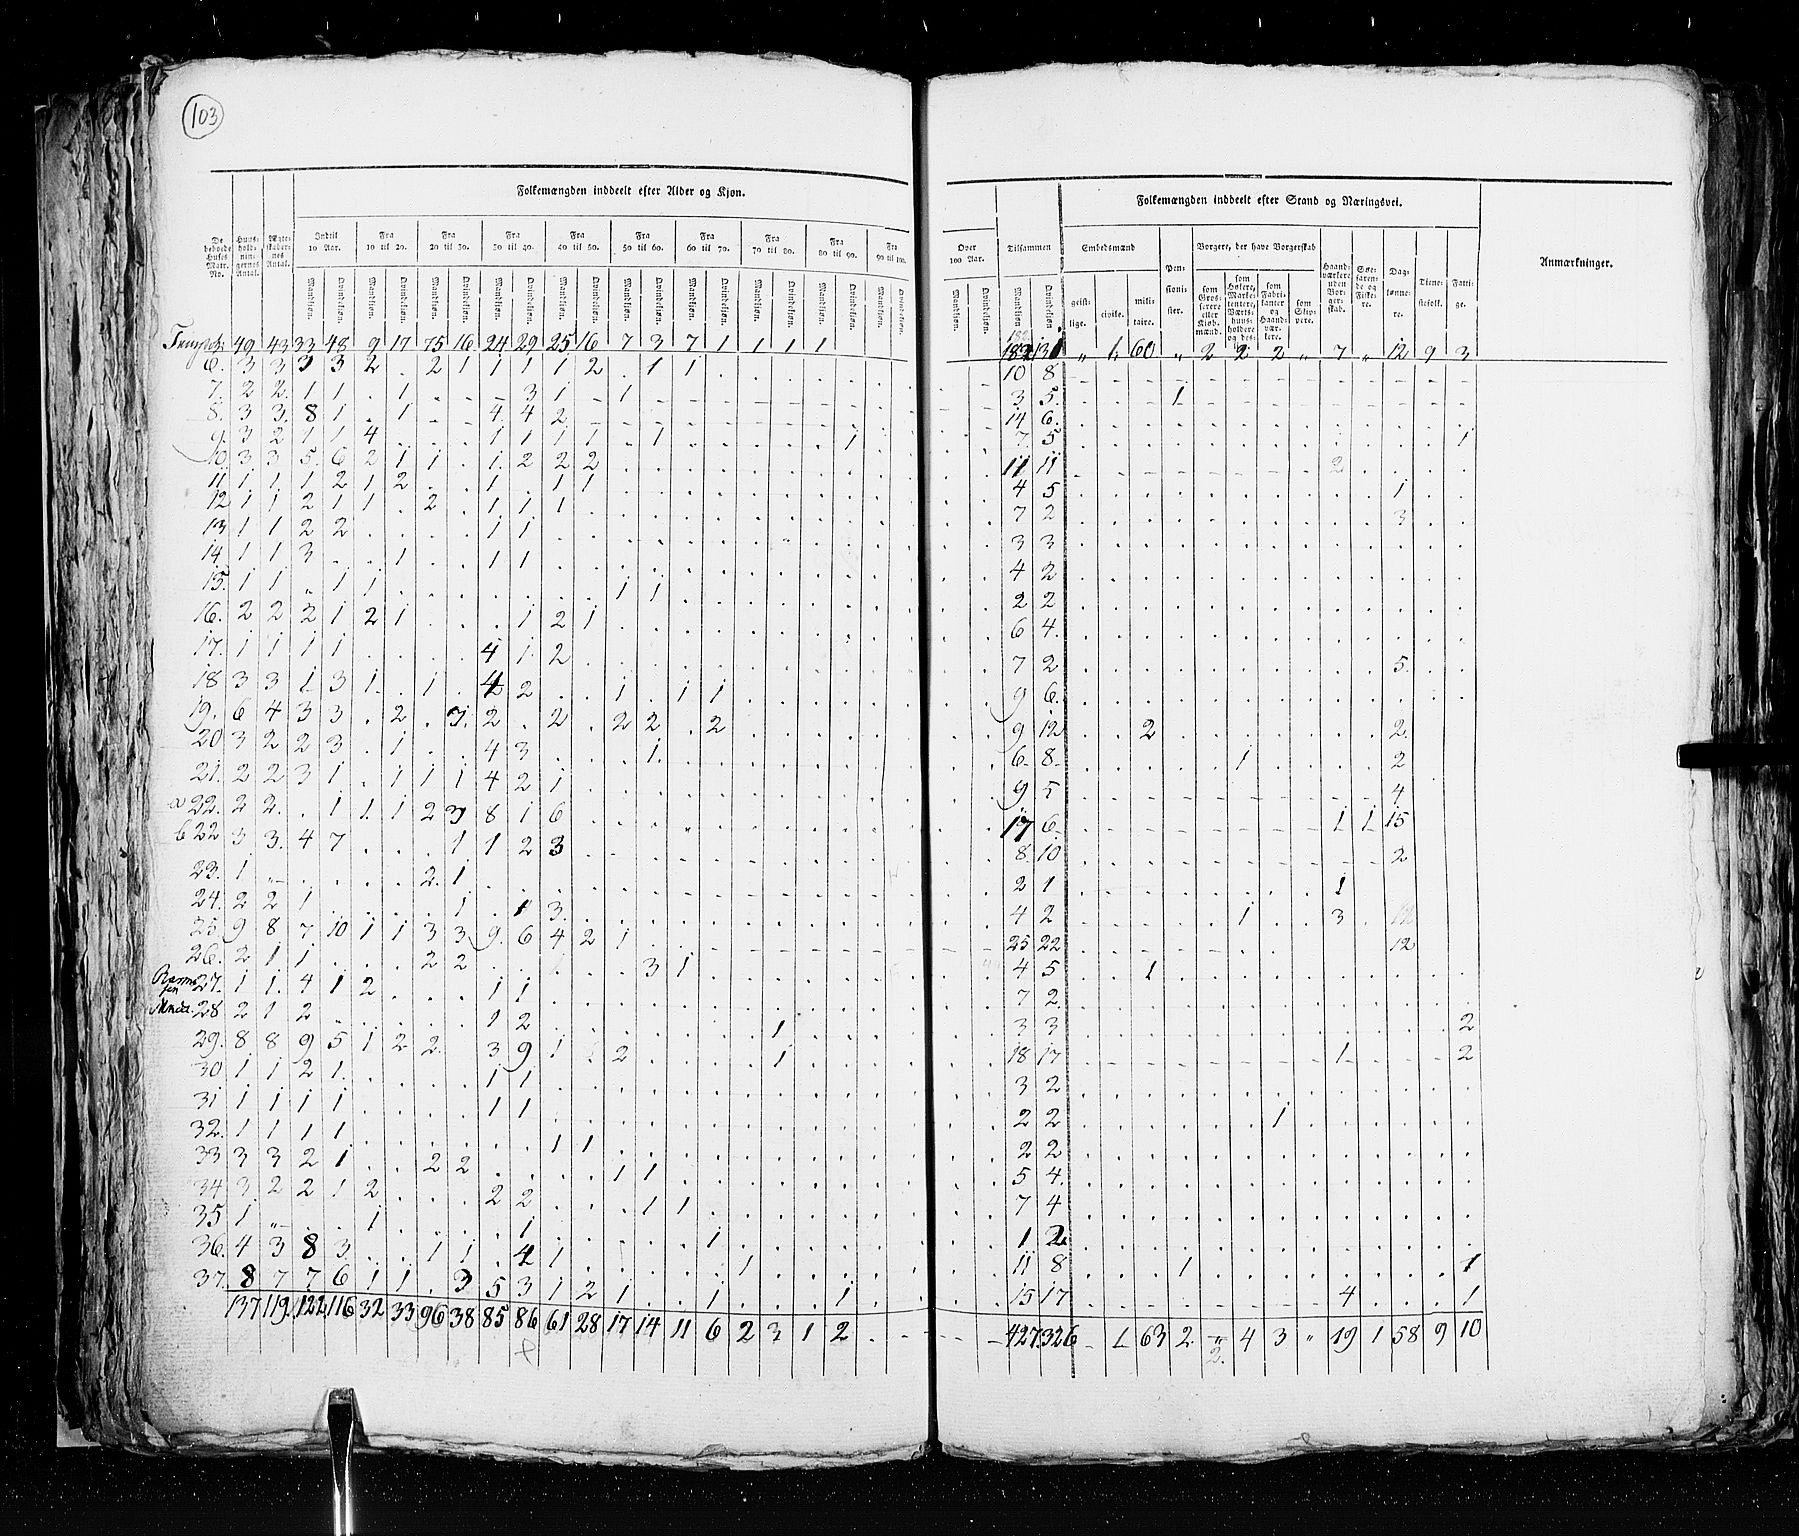 103
Folkemængden inddeelt efter Alder og Kjøn.
Folkemængden inddeelt efter Stand og Næringsvei.
De beboede Huses Matr. No. Huus-hold-nin-gernes Antal. Ægte-skaber-nes Antal. Indtil 10 Aar. Fra 10 til 20. Fra 20 til 30. Fra 30 til 40. Fra 40 til 50. Fra 50 til 60. Fra 60 til 70. Fra 70 til 80. Fra 80 til 90. Fra 90 til 100. Over 100 Aar. Tilsammen Embedsmænd Pen-sioni-ster. Borgere, der have Borgerskab Haand-værkere uden Bor-ger-skab. Søe-farende og Fiske-re. Dag-lønne-re. Tiene-stefolk. Fatti-ge. Anmærkninger.
Mandkjøn. Qvindekjøn. geist-lige. civile. mili-taire. som Gros-serere eller Kjøb-mænd. som Høkere, Marke-tentere, Værts-huus-holdere og des: som Fabri-kanter og Haand-vær-kere. som Skip-pere.
49 43 33 48 9 17 75 16 24 29 25 16 7 3 7 1 1 1 1 131 „ 1 60 „ 2 2 2 „ 7 „ 12 9 3
6. 3 3 3 3 2 . 2 1 1 1 1 2 . 1 1 10 8
7. 2 2 1 1 . 1 . 3 1 - 1 3 5. 1
8. 3 3. 8 1 . 1 4 4 2 14 6.
9. 3 2 1 1 4 1 1 1 1 . 1 1 7. 5 1
10. 3 3 5. 6 2 1 1 . 1. 2 2 2 11 11 2
11 1 1. 1 2 1 2 . . 1 . 1 1 4 5 1
12 1 1 2 1 1 . 2 . 1 1 1 7 2 3
13 1 1 2 2 1 1 3 3
14. 1 1 3 . . 1 1 1 4 2
15. 1 1 „ 1 1 1 1 2 2
16. 2 2 2 1 2 1 . . . 1 2 1 6 4.
17. 1 1 1 1 4 1. 2 7 2 5.
18 3 3 1 3 1. . 1 . 4 2 . . 1 . 1 1 9 6.
19. 6 4 3 3 . 2 . 3. 2 . 2 . 2 2 . 2 9 12 2 2.
20 3 2 2 3 . 1 . . 4 3 1. 6 8 1 2
21. 2 2 3 1 . 1 1 1 4 2 1 9 5 4
a 22. 2 2. . 1 1. 1 2 3 8 1 6 17 6. 1 1 15
b 22 3 3. 4 7 . . . 1 1 2 3 8 10 2
23. 1 „ 2. 1 2 1 1
24. 2 2 1 1 . 1 3. 4 2 1 3
25 9 8 7 10 1 1 3 3 9. 6 4 2 1 25 22 12
26. 2 1 1 2 2 3 1 4 5 1
27. 1 1. 4 1 2 . . . 1 1 7 2
28 2 1 2 1 2 1 3 3 2
29. 8 8 9 5 1 2 2. . 3 9 1 . 2 1 18 17 1 2
30 1 1 2 1. 1 1 3 2
31 1 1 1 1 1 1 2 2 1
32. 1 1 1 1 1 1 2 2
33 3 3 2 1 . . 2 2 1 1 5 4.
34 3. 2 2 1 2 . . . 2 2 . . . 1 1 7 4
35 1 „ . . 1 1 1 1 2
36. 4 3 8 3. . . 1 1 . 4 1 1 11 8 1 1
37. 8 7 7 6 1 1 . 3 5 3 1 2 1 . . 1 1 15 17 4 1
137 119. 122 116 32 33 96 38 85 86 61 28 17 14 11 6 2 3 1 2 427. 326 - 1 63 2. 2. 4 3 „ 19 1 58 9 10